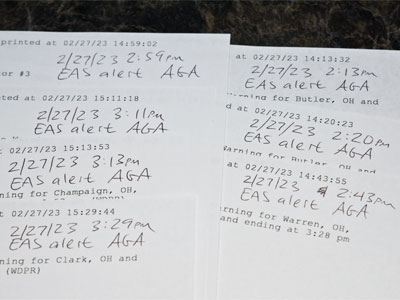 printed at 02/27/23 14:59:02
2/27/23 2:59pm
tor #3 EAS alert AGA
ted at 02/27/23 15:11:18
2/27/23 3:11pm
EAS alert AGA
at 02/27/23 15:13:53
2/27/23 3:13pm
EAS alert AGA
ning for Champaign, OH,
(WDPR)
at 02/27/23 15:29:44
2/27/23 3:29pm
EAS alert AGA
ning for Clark, OH and
(WDPR)
at 02/27/23 14:13:32
2/27/23 2:13pm
EAS alert AGA
rning for Butler, OH and
d at 02/27/23 14:20:23
2/27/23 2:20pm
EAS alert AGA
arning for Butler, OH and
at 02/27/23 14:43:55
2/27/23 2:43pm
EAS alert AGA
rning for Warren, OH,
and ending at 3:28 pm